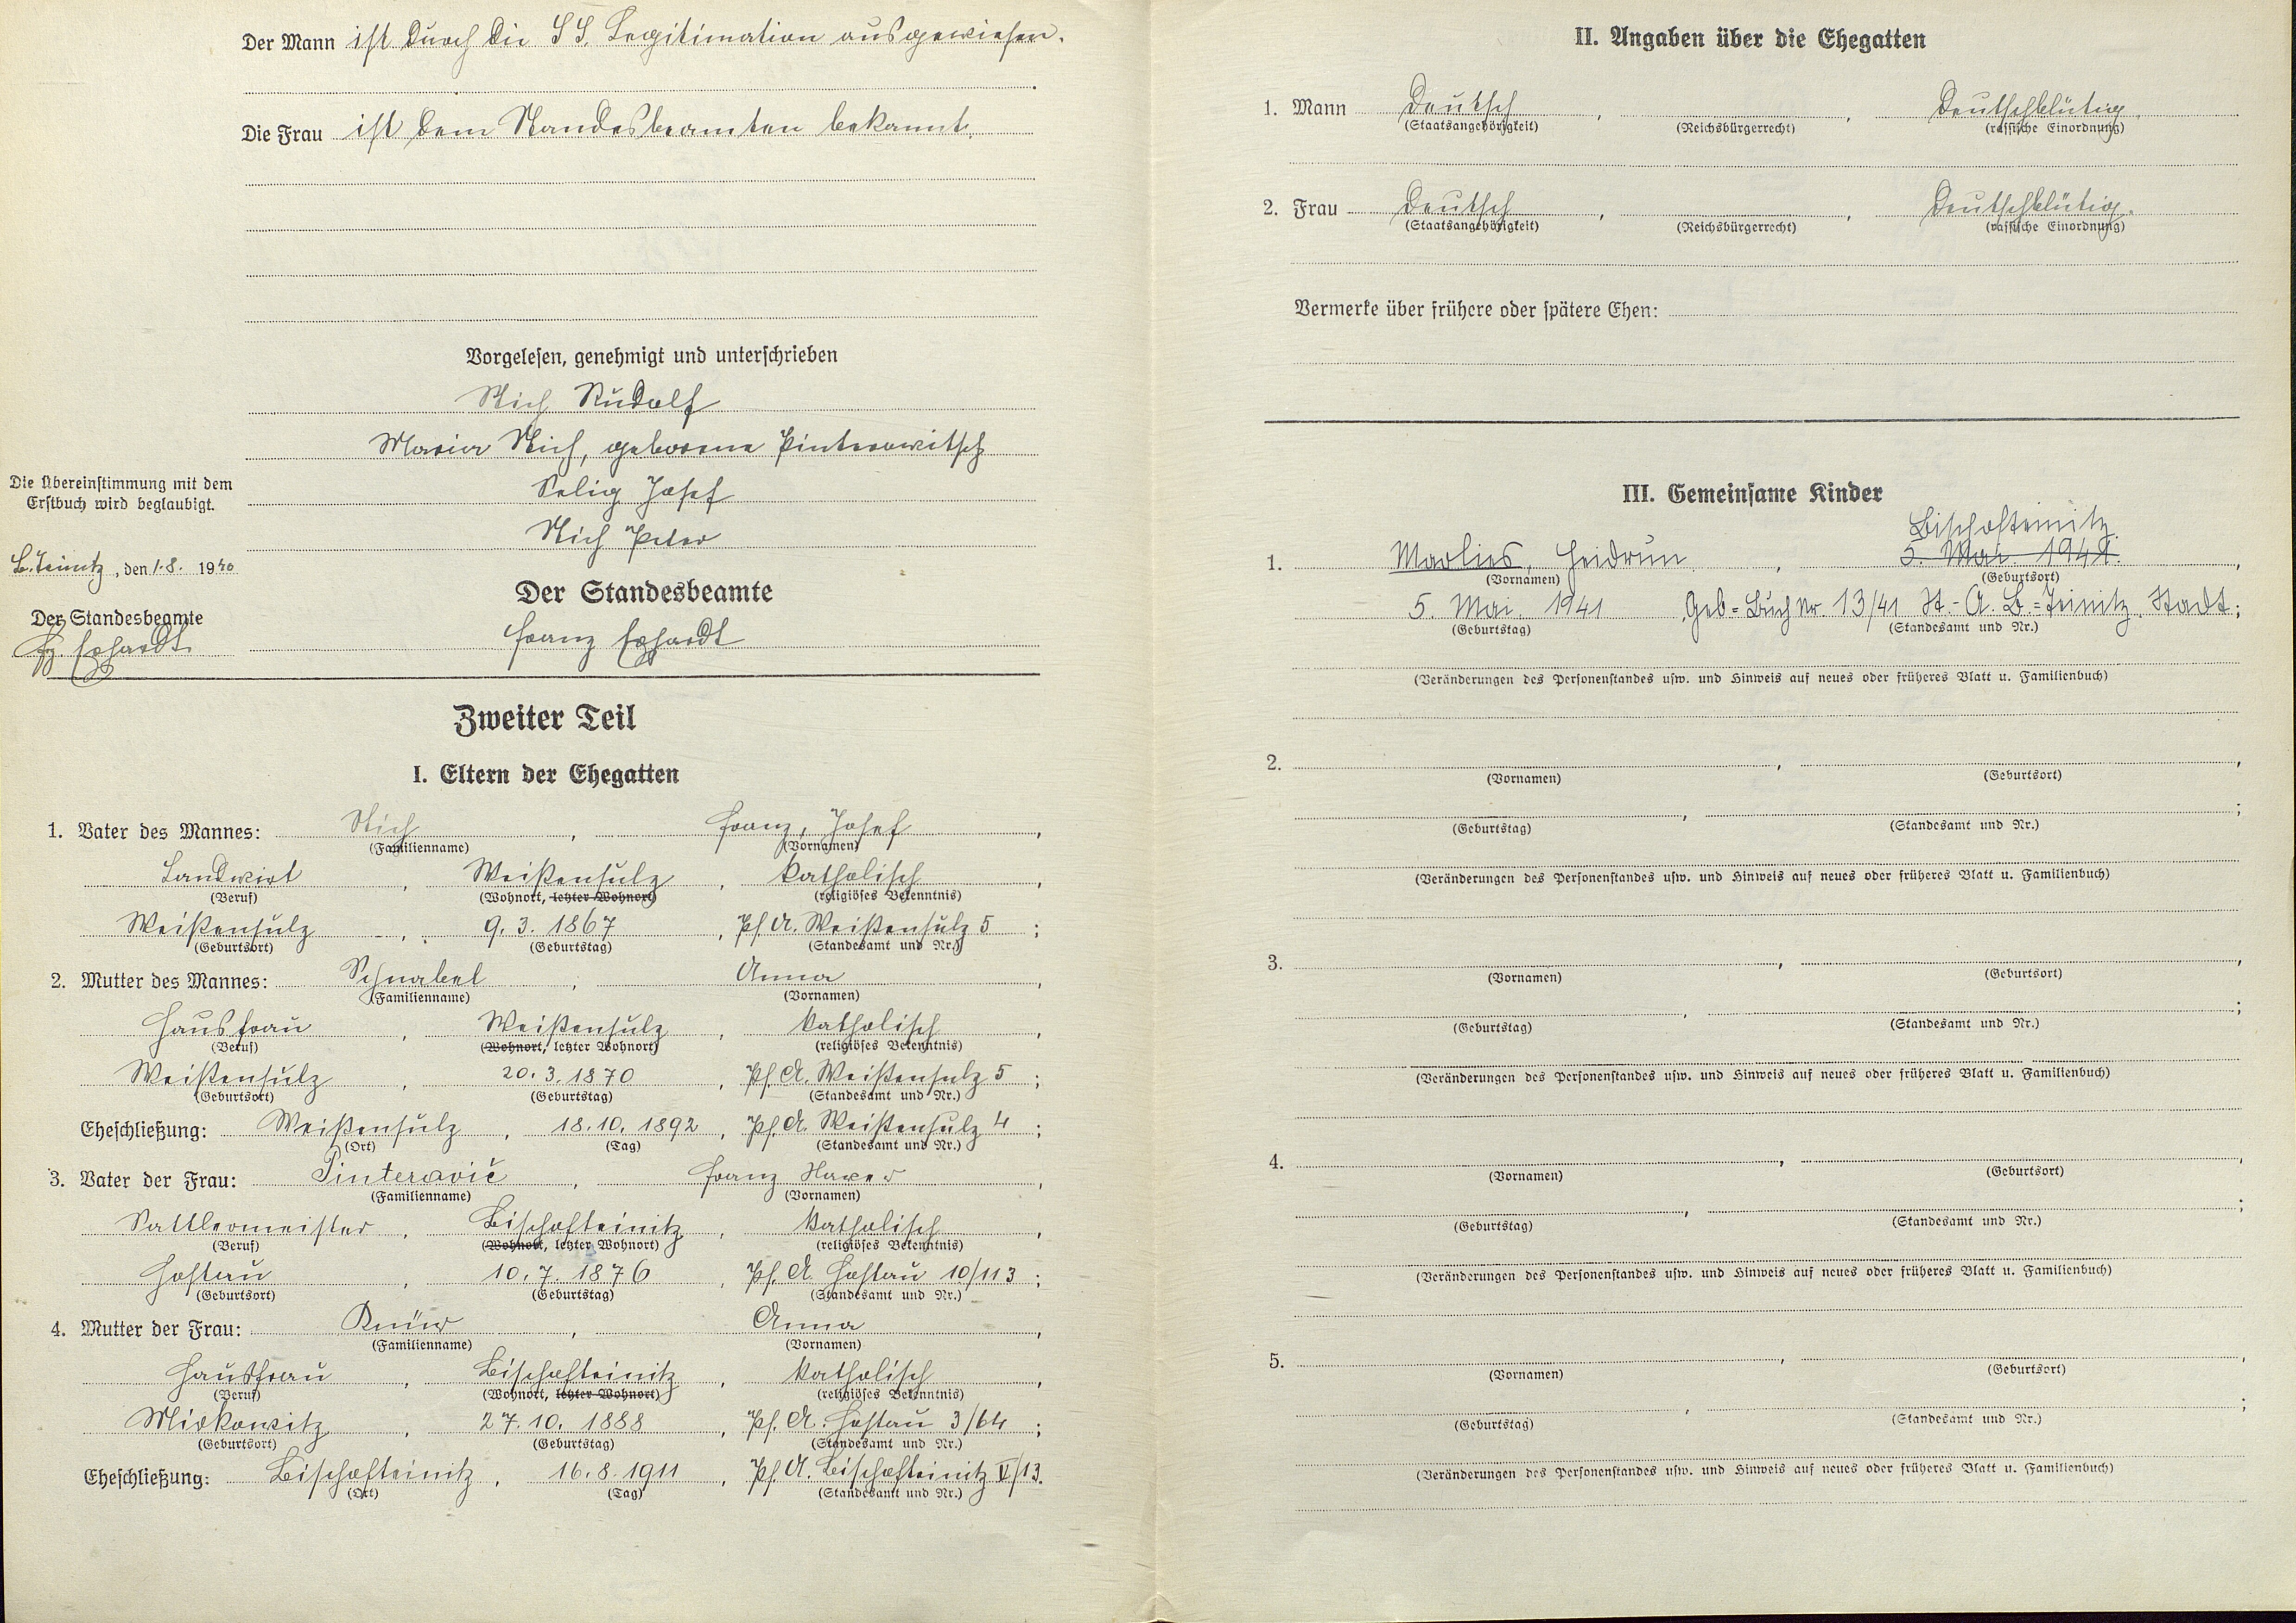 Der Mann ist durch die SS. Legitimation ausgewiesen.
Die Frau ist dem Standesbeamten bekannt.
Vorgelesen, genehmigt und unterschrieben
Rudolf
Maria geborene Pinterowitsch
Selig Josef
Peter
Die Übereinstimmung mit dem
Erstbuch wird beglaubigt.
B. Teinitz, den 1.8. 1940
Der Standesbeamte
Der Standesbeamte
Franz
Zweiter Teil
I. Eltern der Ehegatten
1. Vater des Mannes: Franz, Josef,
(Familienname) (Vornamen)
Landwirt, Weißensulz, katholisch,
(Beruf) (Wohnort, letzter Wohnort) (religiöses Bekenntnis)
Weißensulz, 9. 3. 1867, Pf. A. Weißensulz 5;
(Geburtsort) (Geburtstag) (Standesamt und Nr.)
2. Mutter des Mannes: Schnabel, Anna,
(Familienname) (Vornamen)
Hausfrau, Weißensulz, katholisch,
(Beruf) (Wohnort, letzter Wohnort) (religiöses Bekenntnis)
Weißensulz, 20. 3. 1870, Pf. A. Weißensulz 5;
(Geburtsort) (Geburtstag) (Standesamt und Nr.)
Eheschließung: Weißensulz, 18. 10. 1892, Pf. A. Weißensulz 4;
(Ort) (Tag) (Standesamt und Nr.)
3. Vater der Frau: Pinterovič, Franz Xaver,
(Familienname) (Vornamen)
Sattlermeister, Bischofteinitz, katholisch,
(Beruf) (Wohnort, letzter Wohnort) (religiöses Bekenntnis)
Hostau, 10. 7. 1876, Pf. A. Hostau 10/113;
(Geburtsort) (Geburtstag) (Standesamt und Nr.)
4. Mutter der Frau: Anna,
(Familienname) (Vornamen)
Hausfrau, Bischofteinitz, katholisch,
(Beruf) (Wohnort, letzter Wohnort) (religiöses Bekenntnis)
Mirkowitz, 27. 10. 1888, Pf. A. Hostau 3/64;
(Geburtsort) (Geburtstag) (Standesamt und Nr.)
Eheschließung: Bischofteinitz, 16. 8. 1911, Pf. A. Bischofteinitz
(Ort) (Tag) (Standesamt und Nr.)
II. Angaben über die Ehegatten
1. Mann Deutsch, , Deutschblütig.
(Staatsangehörigkeit) (Reichsbürgerrecht) (rassische Einordnung)
2. Frau Deutsch, , Deutschblütig.
(Staatsangehörigkeit) (Reichsbürgerrecht) (rassische Einordnung)
Vermerke über frühere oder spätere Ehen:
III. Gemeinsame Kinder
Bischofteinitz
1. Marlies, Heidrun, 5. Mai 1941.,
(Vornamen) (Geburtsort)
5. Mai 1941 Geb=Buch Nr 13/41 St.-A. B.=Teinitz Stadt;
(Geburtstag) (Standesamt und Nr.)
(Veränderungen des Personenstandes usw. und Hinweis auf neues oder früheres Blatt u. Familienbuch)
2. , ,
(Vornamen) (Geburtsort)
, ;
(Geburtstag) (Standesamt und Nr.)
(Veränderungen des Personenstandes usw. und Hinweis auf neues oder früheres Blatt u. Familienbuch)
3. , ,
(Vornamen) (Geburtsort)
, ;
(Geburtstag) (Standesamt und Nr.)
(Veränderungen des Personenstandes usw. und Hinweis auf neues oder früheres Blatt u. Familienbuch)
4. , ,
(Vornamen) (Geburtsort)
, ;
(Geburtstag) (Standesamt und Nr.)
(Veränderungen des Personenstandes usw. und Hinweis auf neues oder früheres Blatt u. Familienbuch)
5. , ,
(Vornamen) (Geburtsort)
, ;
(Geburtstag) (Standesamt und Nr.)
(Veränderungen des Personenstandes usw. und Hinweis auf neues oder früheres Blatt u. Familienbuch)